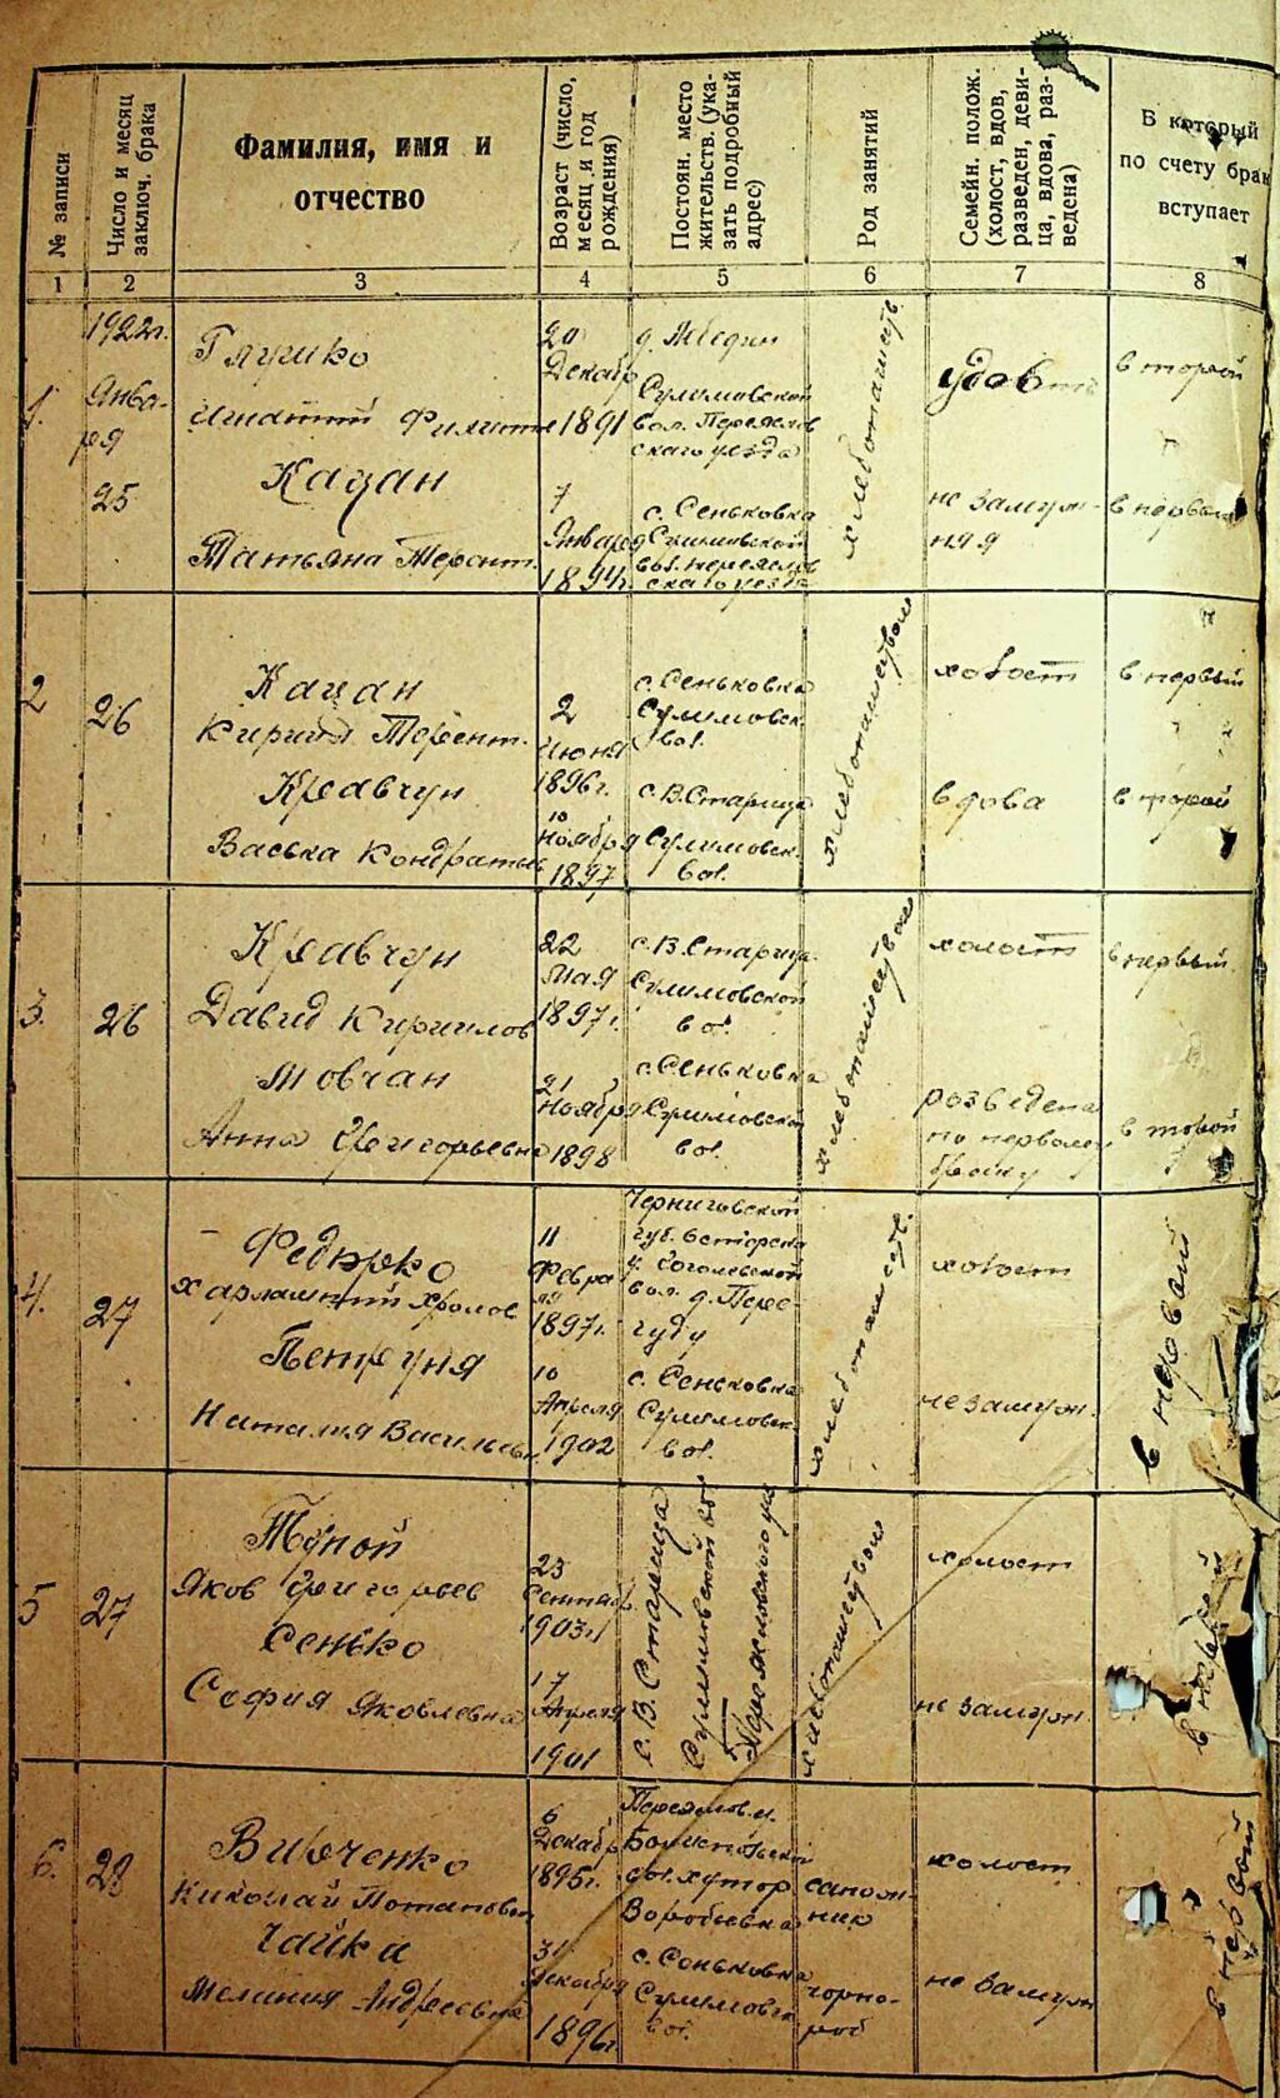 № записи
Число и месяц
заключ. брака
Фамилия, имя и
отчество
Возраст (число,
месяц и год
рождения)
Постоян. место
жительств. (ука-
зать подробный
адрес)
Род занятий
Семейн. полож.
(холост, вдов,
разведен, деви-
ца, вдова, раз-
ведена)
В который
по счету брак
вступает
1 2 3 4 5 6 7 8
1.
1922г.
Янва-
ря
25
Игнатий Филипп
Кацан
Татьяна Терент.
20
Декабр
1891
7
Января
1894г.
Сулимовской
вол. Переяслов
скаго уезда
с. Сеньковка
Сулимовской
вол. переяслов
скаго уезда
хлебопашеств
удов
не замуж-
няя
второй
в первый
2
26
Кацан
Кирилл Терент.
Кравчун
Васька Кондратьев
2
Июня
1896г.
10
Ноября
1897
с. Сеньковка
Сулимовск.
вол.
с. В. Старица
Сулимовск.
вол.
хлебопашеством
холост
вдова
в первый
второй
3.
26
Кравчун
Давид Кириллов
Мовчан
Анна Григорьевна
22
Мая
1897г.
21
Ноября
1898
с. В. Старица
Сулимовской
вол.
с. Сеньковка
Сулимовской
вол.
хлебопашеством
холост
розведена
по первому
браку
в первый
в торой
4.
27
Федорко
Харлампий Фролов
Петруня
Наталия Васильев
11
Февра
ля
1897г.
10
Апреля
1902
Черниговской
губ. Остерско
у. Гоголевской
вол. д. Пере-
с. Сеньковка
Сулимовск.
вол.
хлебопашеств.
холост
незамуж.
в первой
5
27
Тупой
Яков Григорьев
Сенько
София Яковлевна
23
Сентяб.
1903г.
17
Апреля
1901
с. В. Старица
Сулимовской во
Переясловского уез
хлебопашеством
холост
не замуж.
в первой
6.
28
Вивченко
Николай Потапович
Чайка
Мелания Андреевна
6
Декабр
1895г.
31
Декабря
1896г.
Переяслов. у.
вол. хутор
Воробьевка
с. Сеньковка
Сулимовск
вол.
сапож-
ник
чорно-
роб
холост
не замуж
в первой